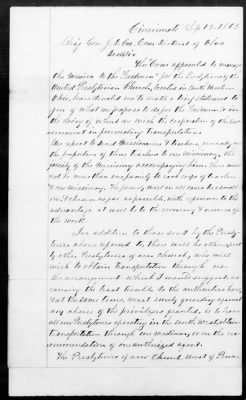 Cincinnati Sep 12. 1863
Brig Gen J. D. Cox. Com District of Ohio
The Com appointed to manage
the Mission to the Freedmen for the Presbyteries of the
United Presbyterian Church, located in South Western
Ohio, have desired me to make a brief statement to
you of what we propose to do for the Freedmen and
the doing of which we need the cooperation of the Gov
ernment in furnishing transportation.
We expect to send Missionaries & teachers, usually in
the proportion of three teachers to one Missionary, the
family of the Missionary accompanying him. There will
not be more than one family to each corps of teachers
and one Missionary. The family will in all cases be small
and chosen as far as possible, with reference to the
advantage it will be to the economy & success of
the work.
In addition to those sent by the Presby
teries above referred to there will be others sent
by other Presbyteries of our church, who will
wish to obtain transportation through us.
The arrangement which I would suggest as
causing the least trouble to the authorities here
& at the same time, most surely guarding against
any abuse of the privileges granted, is to have
all our Presbyteries operating in the South West obtain
transportation through me and on the recom
mendation of our authorized agent.
The Presbyteries of our Church west of Penn